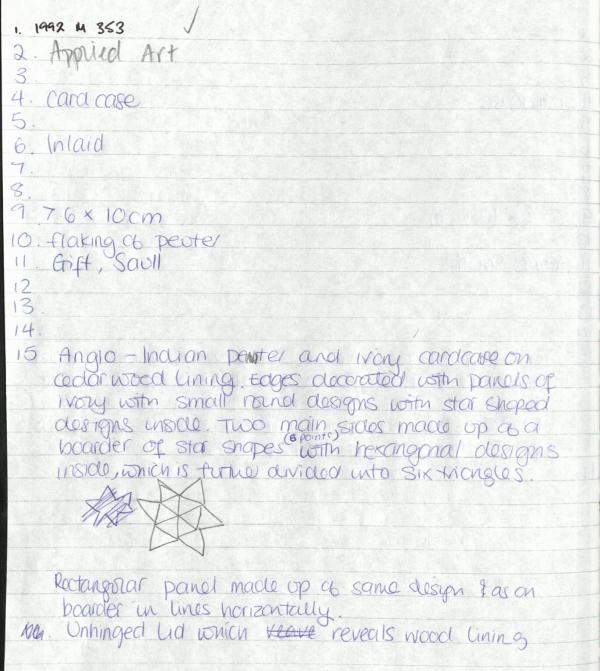 1. 1992 M 353 ✓
2. Applied Art
3
4. Card case
5.
6. Inlaid
7.
8.
9 7.6 x 10cm
10. flaking of pewter
11. Gift, Saull
12
13.
14.
15 Anglo-Indian pewter and ivory cardcase on
cedar wood lining. Edges decorated with panels of
ivory with small round designs with star shaped
designs inside. Two main sides made up of a
boarder of star shapes (6 points) with hexangonal designs
inside, which is divided into six triangles.
Rectangular panel made up of same design & as on
boarder in lines horizontally.
Unhinged lid which reveals wood lining